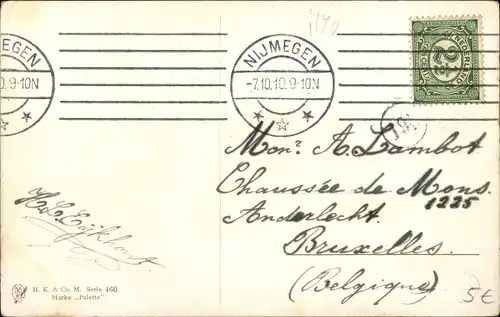 1140
NIJMEGEN
NIJMEGEN
0.9-10N
-7.10.10.9-10N
NEDERLAND
2½
19
Monr. A. Lambot
Chaussée de Mons.
1225
Anderlecht.
Bruxelles.
(Belgique)
5€
H. K. & Co. M. Serie 460.
Marke „Palette"